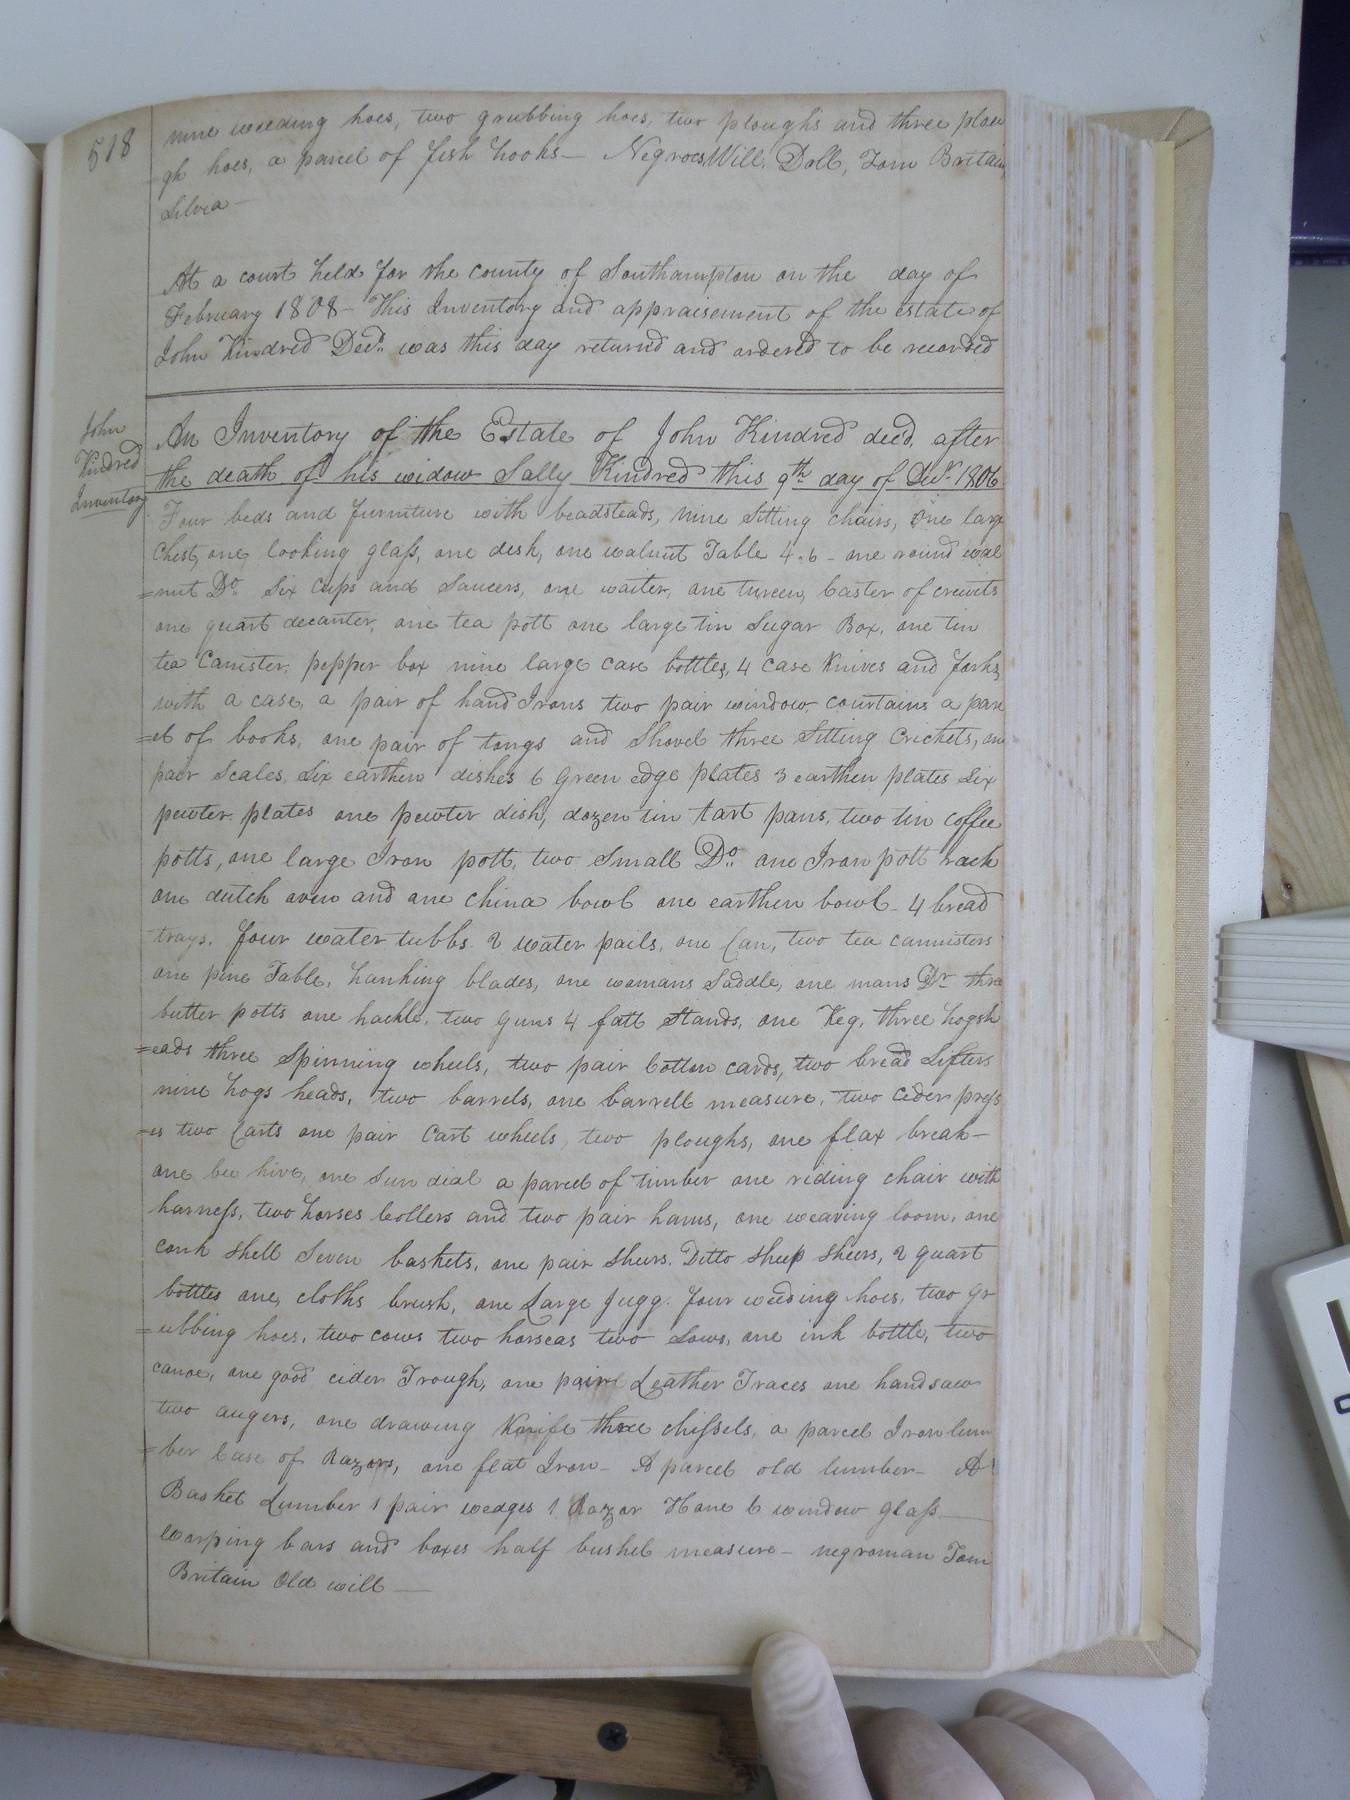 518
nine weeding hoes, two grubbing hoes, two ploughs and three plou
gh hoes, a parcel of fish hooks— Negroes Will, Doll, Tom Britain,
Silvia—
At a court held for the county of Southampton on the day of
February 1808— This Inventory and appraisement of the estate of
John Kindred Decd. was this day returnd and ordered to be recorded
John
Kindred
Inventory
An Inventory of the Estate of John Kindred decd, after
the death of his widow Sally Kindred this 9th day of Decr. 1806
Four beds and furniture with beadsteads, nine Sitting chairs, One large
Chest, one looking glass, one desk, one walnut Table 4.6 - one round wal
=nut Do. Six Cups and Saucers, one waiter, one tureen, Caster of crewits
one quart decanter, one tea pott one large tin Sugar Box, one tin
tea Canister, pepper box nine large case bottles, 4 Case Knives and forks,
with a case, a pair of hand Irons two pair window courtains a parc
=el of books, one pair of tongs and Shovel three Sitting Crickets, one
pair Scales, Six earthen dishes 6 Green edge plates 3 earthen plates Six
pewter plates one pewter dish, dozen tin tart pans, two tin coffee
potts, one large Iron pott, two Small Do. one Iron pott rack
one dutch oven and one china bowl one earthen bowl - 4 bread
trays. four water tubbs. 2 water pails, one Can, two tea cannisters
one pine Table, hanking blades, one womans Saddle, one mans Do three
butter potts one hackle, two Guns 4 fatt Stands, one Keg, three hogsh
=eads three Spinning wheels, two pair Cotton cards, two bread Sifters
nine hogs heads, two barrels, one barrell measure, two Cider press
=es two Carts one pair Cart wheels, two ploughs, one flax break—
one bee hive, one Sun dial a parcel of timber one riding chair with
harness, two horses Collers and two pair hams, one weaving loom, one
conk shell Seven baskets, one pair Shears. Ditto Sheep Sheers, 2 quart
bottles one, cloths brush, one Large Jugg. four weeding hoes, two gr
=ubbing hoes, two cows two horseas two Sows, one ink bottle, two
canoe, one good cider Trough, one pair Leather Traces one handsaw
two augers, one drawing Knife three chissels, a parcel Iron lum
=ber Case of Razors, one flat Iron— A parcel old lumber— A
Basket Lumber 1 pair wedges 1 Razor Hone 6 window glass—
warping bars and boxes half bushel measure— negroman Tom
Britain Old will—